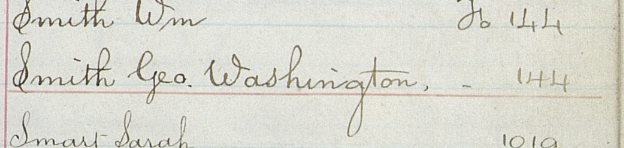 Smith Wm Fo 144
Smith Geo. Washington. - 144
Smart Sarah 1019